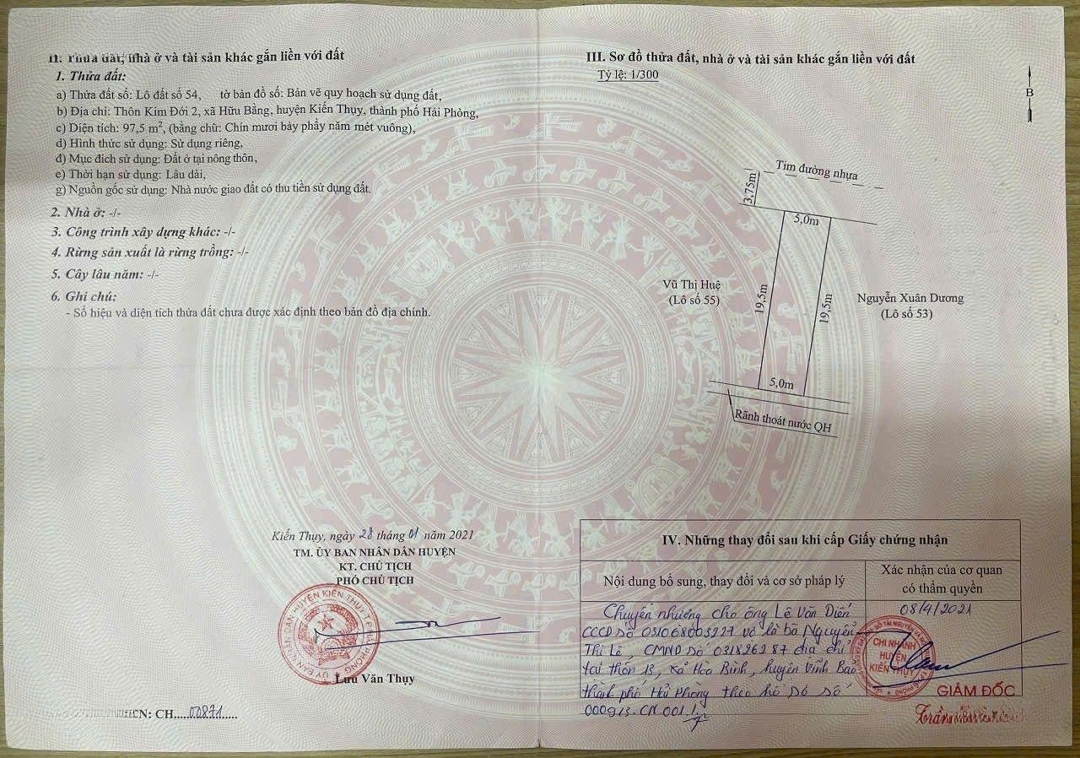 II. Thửa đất, nhà ở và tài sản khác gắn liền với đất
1. Thửa đất:
a) Thửa đất số: Lô đất số 54, tờ bản đồ số: Bản vẽ quy hoạch sử dụng đất,
b) Địa chỉ: Thôn Kim Đới 2, xã Hữu Bằng, huyện Kiến Thụy, thành phố Hải Phòng,
c) Diện tích: 97,5 m², (bằng chữ: Chín mươi bảy phẩy năm mét vuông),
d) Hình thức sử dụng: Sử dụng riêng,
đ) Mục đích sử dụng: Đất ở tại nông thôn,
e) Thời hạn sử dụng: Lâu dài,
g) Nguồn gốc sử dụng: Nhà nước giao đất có thu tiền sử dụng đất.
2. Nhà ở: -/-
3. Công trình xây dựng khác: -/-
4. Rừng sản xuất là rừng trồng: -/-
5. Cây lâu năm: -/-
6. Ghi chú:
- Số hiệu và diện tích thửa đất chưa được xác định theo bản đồ địa chính.
Kiến Thụy, ngày 28 tháng 01 năm 2021
TM. ỦY BAN NHÂN DÂN HUYỆN
KT. CHỦ TỊCH
PHÓ CHỦ TỊCH
Lưu Văn Thụy
CN: CH.....00871.....
III. Sơ đồ thửa đất, nhà ở và tài sản khác gắn liền với đất
Tỷ lệ: 1/300
B
Tim đường nhựa
3,75m
5,0m
Vũ Thị Huệ
(Lô số 55)
19,5m
19,5m
Nguyễn Xuân Dương
(Lô số 53)
5,0m
Rãnh thoát nước QH
IV. Những thay đổi sau khi cấp Giấy chứng nhận
Nội dung bổ sung, thay đổi và cơ sở pháp lý
Xác nhận của cơ quan
có thẩm quyền
Chuyển nhượng cho ông Lê Văn Diễn
CCCD số 031068003227 và là bà Nguyễn
Thị Lê, CMND số 031826287 địa chỉ
tại thôn 13, xã Hòa Bình, huyện Vĩnh Bảo
thành phố Hải Phòng theo hồ sơ số
000913.CN.001.
08/4/2021
CHI NHÁNH
HUYỆN
KIẾN THỤY
GIÁM ĐỐC
Trần